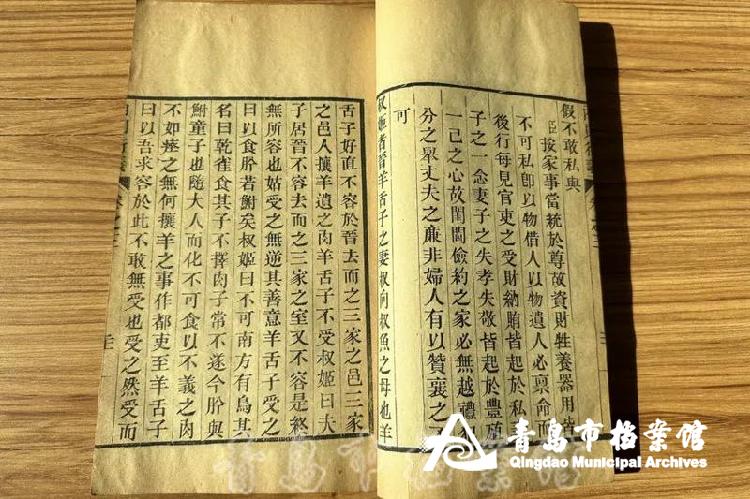 假不敢私與
臣按家事當統於尊故資財牲養器用皆
不可私卽以物借人以物遺人必禀命而
後行每見官吏之受財納賄皆起於私
子之一念妻子之失孝失敬皆起於豐殖
一己之心故閨閫儉約之家必無越禮
分之眾丈夫之廉非婦人有以贊襄之
可
叔姬者晉羊舌子之妻叔向叔魚之母也羊
舌子好直不容於晉去而之三家之邑三家
之邑人攘羊遺之肉羊舌子不受叔姬曰夫
子居晉不容去而之三家之室又不容是終
無所容也姑受之無逆其善意羊舌子受之
曰以食肸若鮒矣叔姬曰不可南方有鳥其
名曰乾雀食其子不擇肉子常不遂今肸與
鮒童子也隨大人而化不可食以不義之肉
不如瘞之無何攘羊之事作都吏至羊舌子
曰以吾求容於此不敢無受也受之然受而
青岛市档案馆
Qingdao Municipal Archives
青岛市档案馆